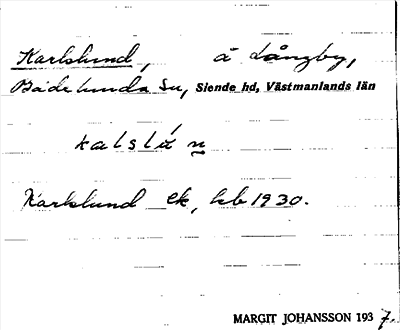 Karlslund, å Långby,
Badelunda sn, Siende hd, Västmanlands län
kalslún
Karlslund ek, kb 1930.
MARGIT JOHANSSON 1937.